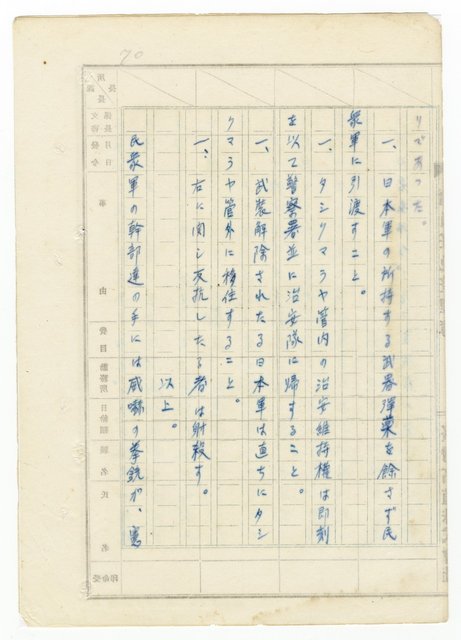 りであった。
一、日本軍の所持する武器弾薬を余さず民
衆軍に引渡すこと。
一、タシクマラヤ管内の治安維持権は即刻
を以て警察署並に治安隊に帰すること。
一、武装解除されたる日本軍は直ちにタシ
クマラヤ管外に移住すること。
一、右に関し反抗したる者は射殺す。
以上。
民衆軍の幹部達の手には威嚇の拳銃が、憲
70